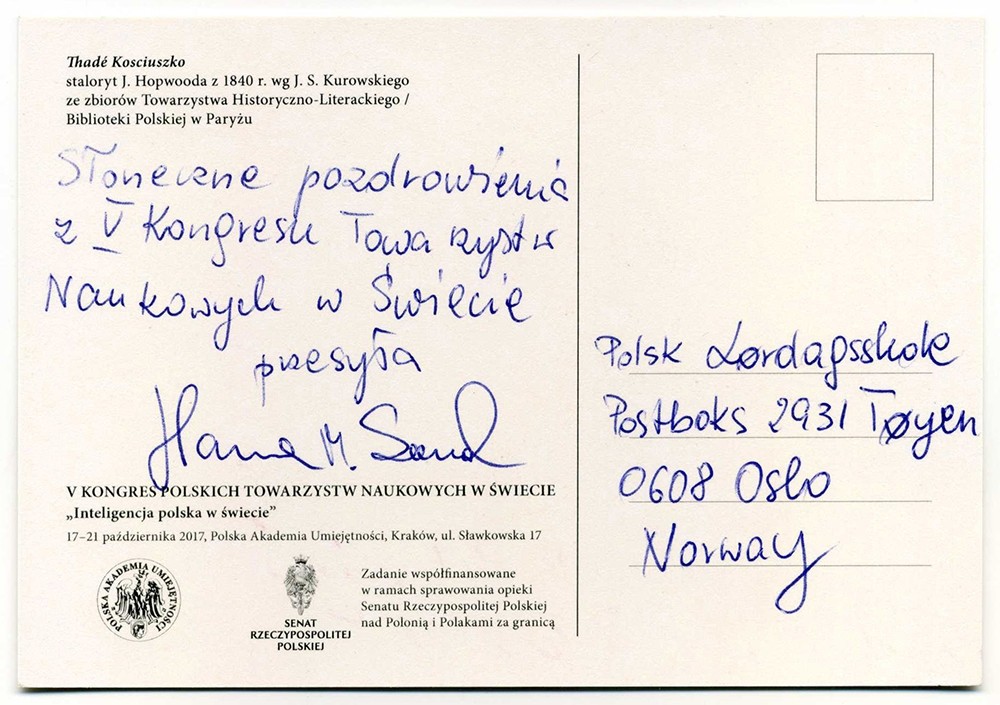 Thadé Kosciuszko
staloryt J. Hopwooda z 1840 r. wg J. S. Kurowskiego
ze zbiorów Towarzystwa Historyczno-Literackiego /
Biblioteki Polskiej w Paryżu
Słoneczne pozdrowienia
z V Kongresu Towarzystw
Naukowych w Świecie
przesyła
Hanna M. Sand
V KONGRES POLSKICH TOWARZYSTW NAUKOWYCH W ŚWIECIE
„Inteligencja polska w świecie”
17–21 października 2017, Polska Akademia Umiejętności, Kraków, ul. Sławkowska 17
POLSKA AKADEMIA UMIEJĘTNOŚCI
SENAT
RZECZYPOSPOLITEJ
POLSKIEJ
Zadanie współfinansowane
w ramach sprawowania opieki
Senatu Rzeczypospolitej Polskiej
nad Polonią i Polakami za granicą
Polsk Lørdagsskole
Postboks 2931 Tøyen
0608 Oslo
Norway